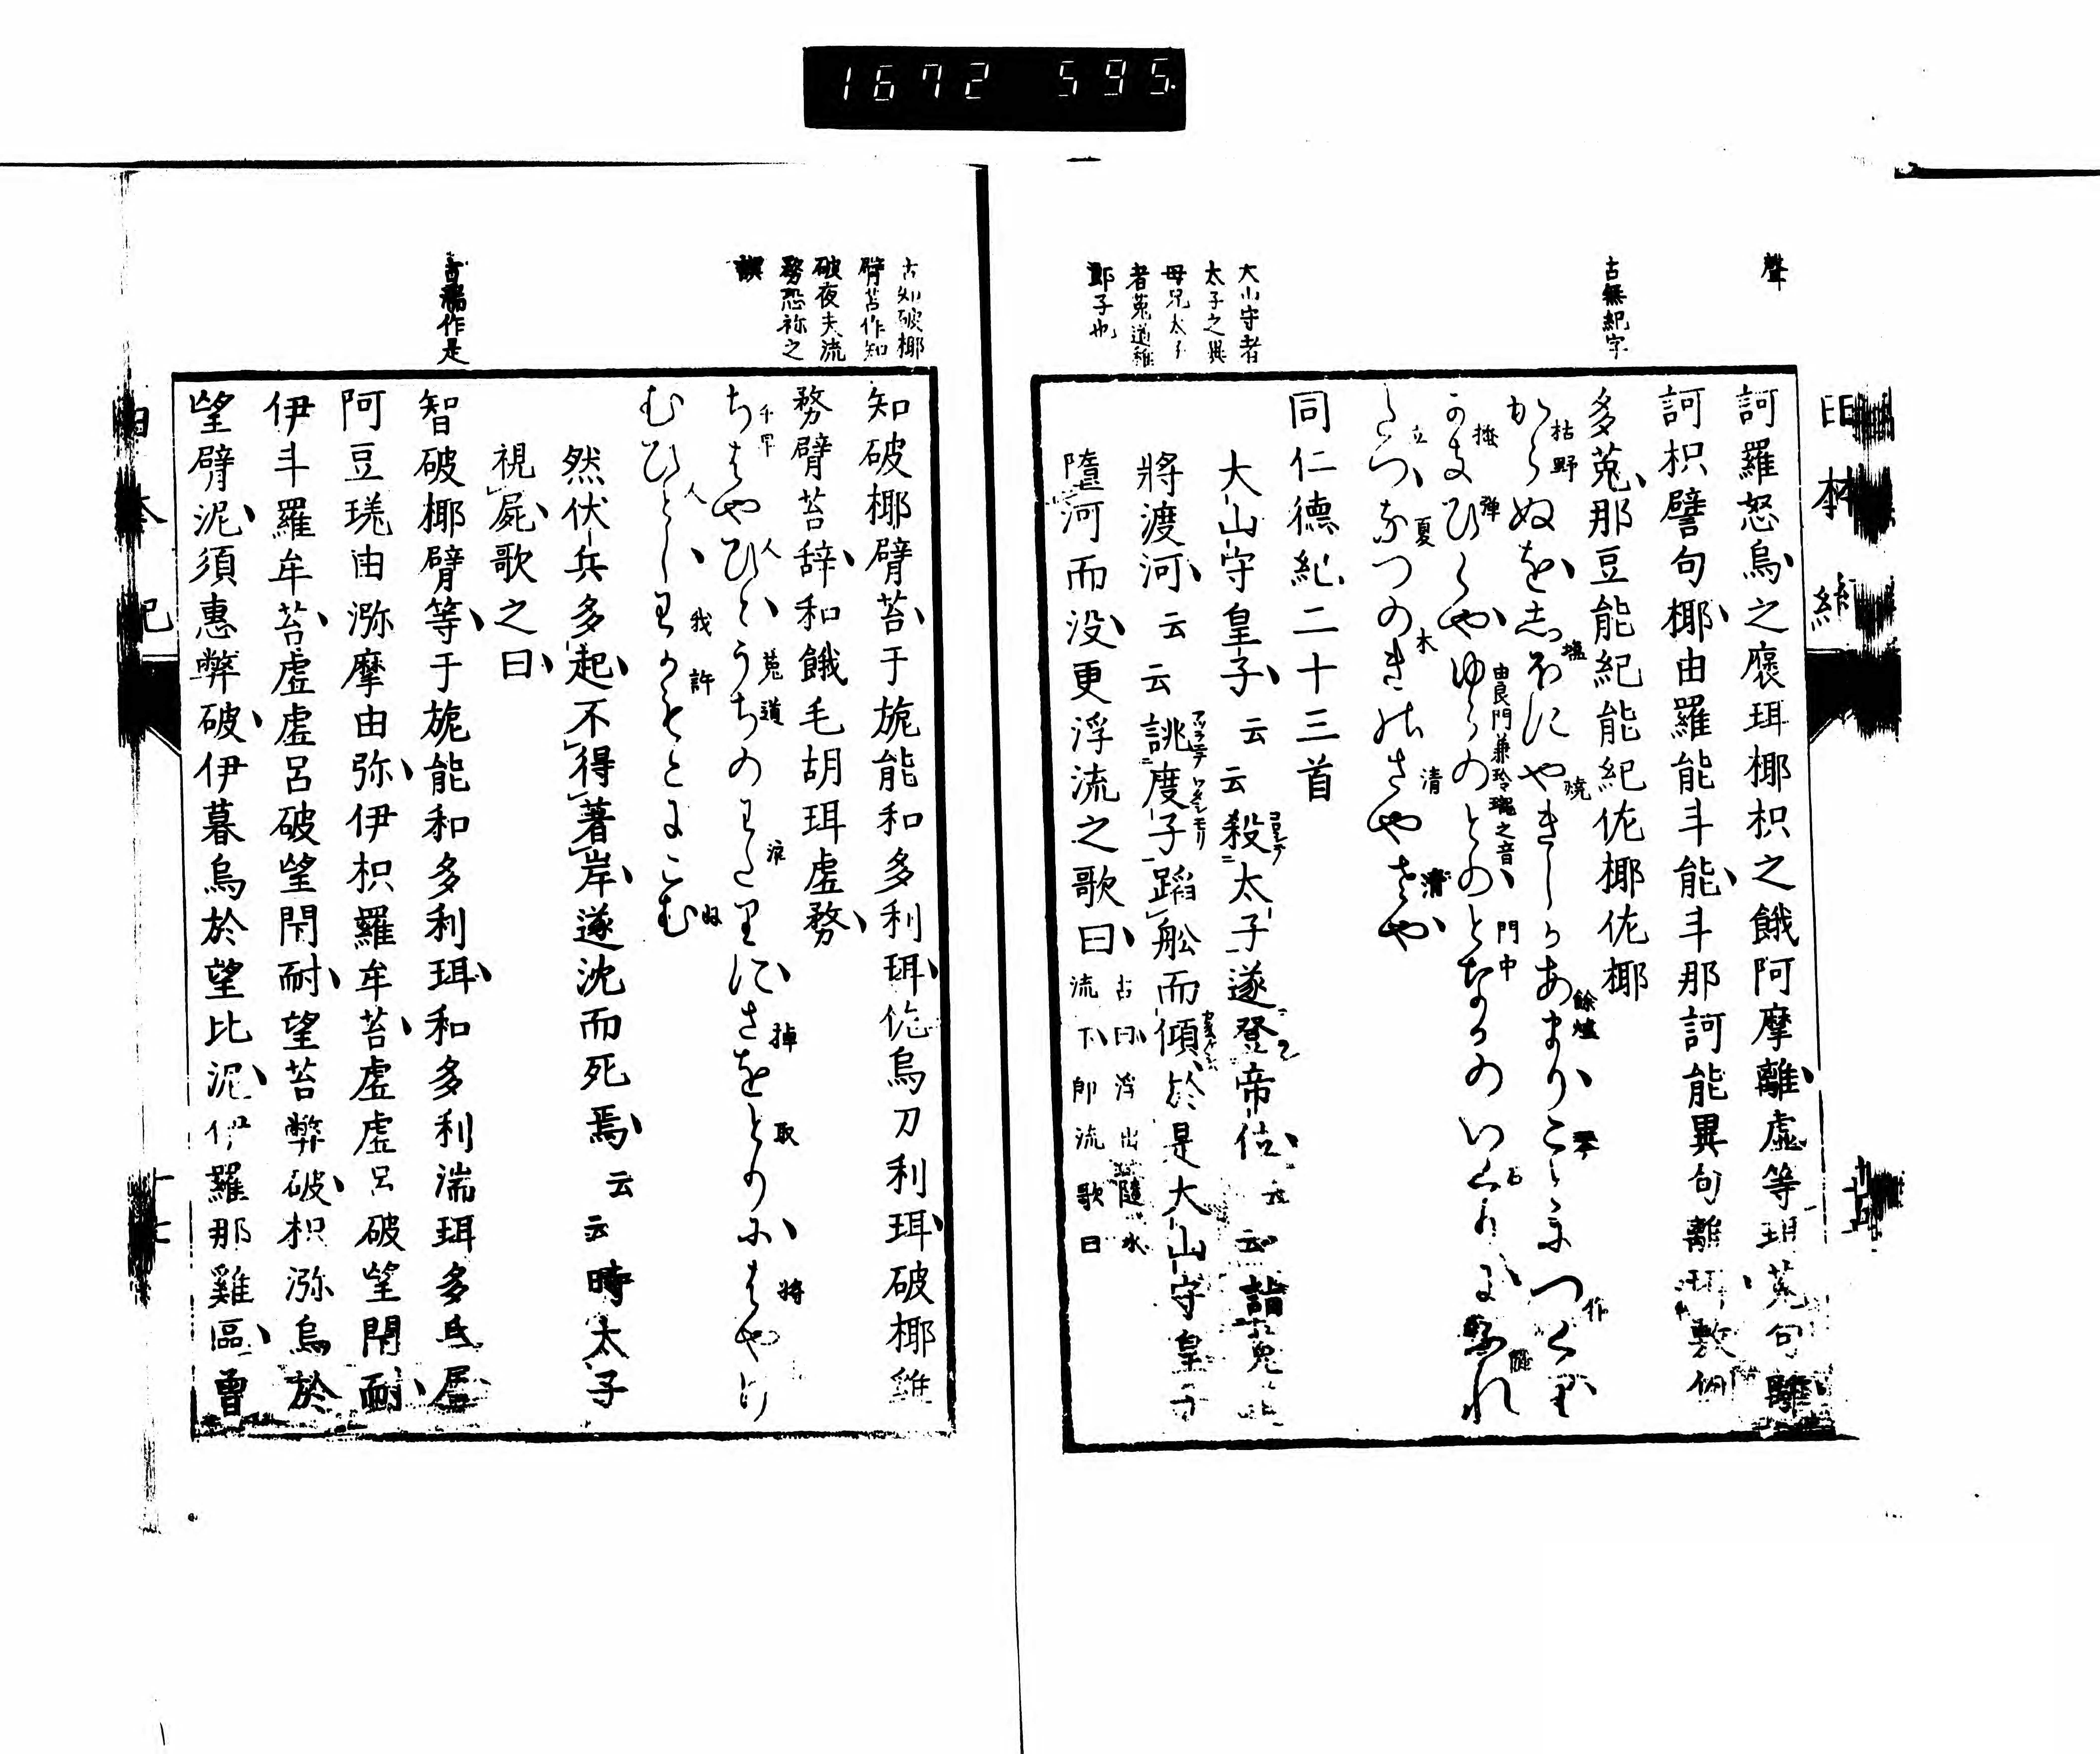 1672 595
聲
古無紀字
大山守者
太子之異
母兄太子
者菟道稚
郎子也
訶羅怒烏之褒珥椰枳之餓阿摩離虛等珥菟句離
訶枳譬句椰由羅能斗能斗那訶能異句離珥敷例
多菟那豆能紀能紀佐椰佐椰
からぬをしほにやきしかあまりことにつくり
かきひくやゆらのとのとなかのいくりにふれ
たつなつのきのさやさや
同仁德紀二十三首
大山守皇子云云殺太子遂登帝位云云詣菟
將渡河云云誂度子蹈舩而傾於是大山守皇子
墮河而没更浮流之歌曰古曰浮出隨水
流下即流歌曰
古知破椰
臂苔作知
破夜夫流
務恐祢之
誤
古湍作是
知破椰臂苔于旎能和多利珥佐烏刀利珥破椰鶏
務臂苔辞和餓毛胡珥虛務
ちはやひとうちのわたりにさをとりにはやけ
むひとしわかもとにこむ
然伏兵多起不得著岸遂沈而死焉云云時太子
視屍歌之曰
智破椰臂等于旎能和多利珥和多利湍珥多氐屢
阿豆瑳由瀰摩由弥伊枳羅牟苔虛虛呂破望閇耐
伊斗羅牟苔虛虛呂破望閇耐望苔弊破枳瀰烏於
望臂泥須惠弊破伊暮烏於望比泥伊羅那鶏區曽